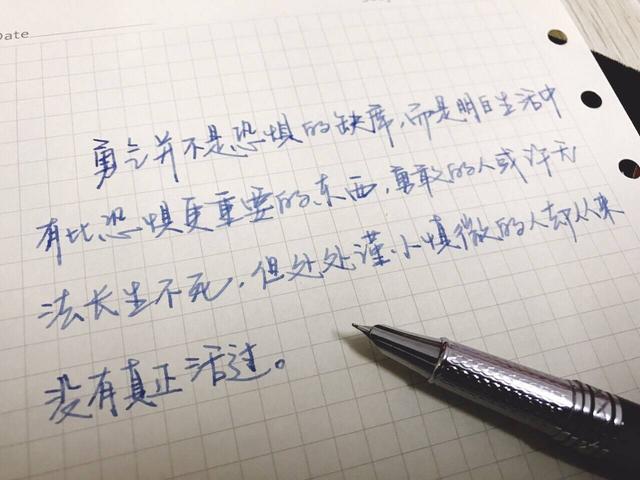 Date
勇气并不是恐惧的缺席,而是明白生活中
有比恐惧更重要的东西,勇敢的人或许无
法长生不死,但处处谨小慎微的人却从来
没有真正活过。